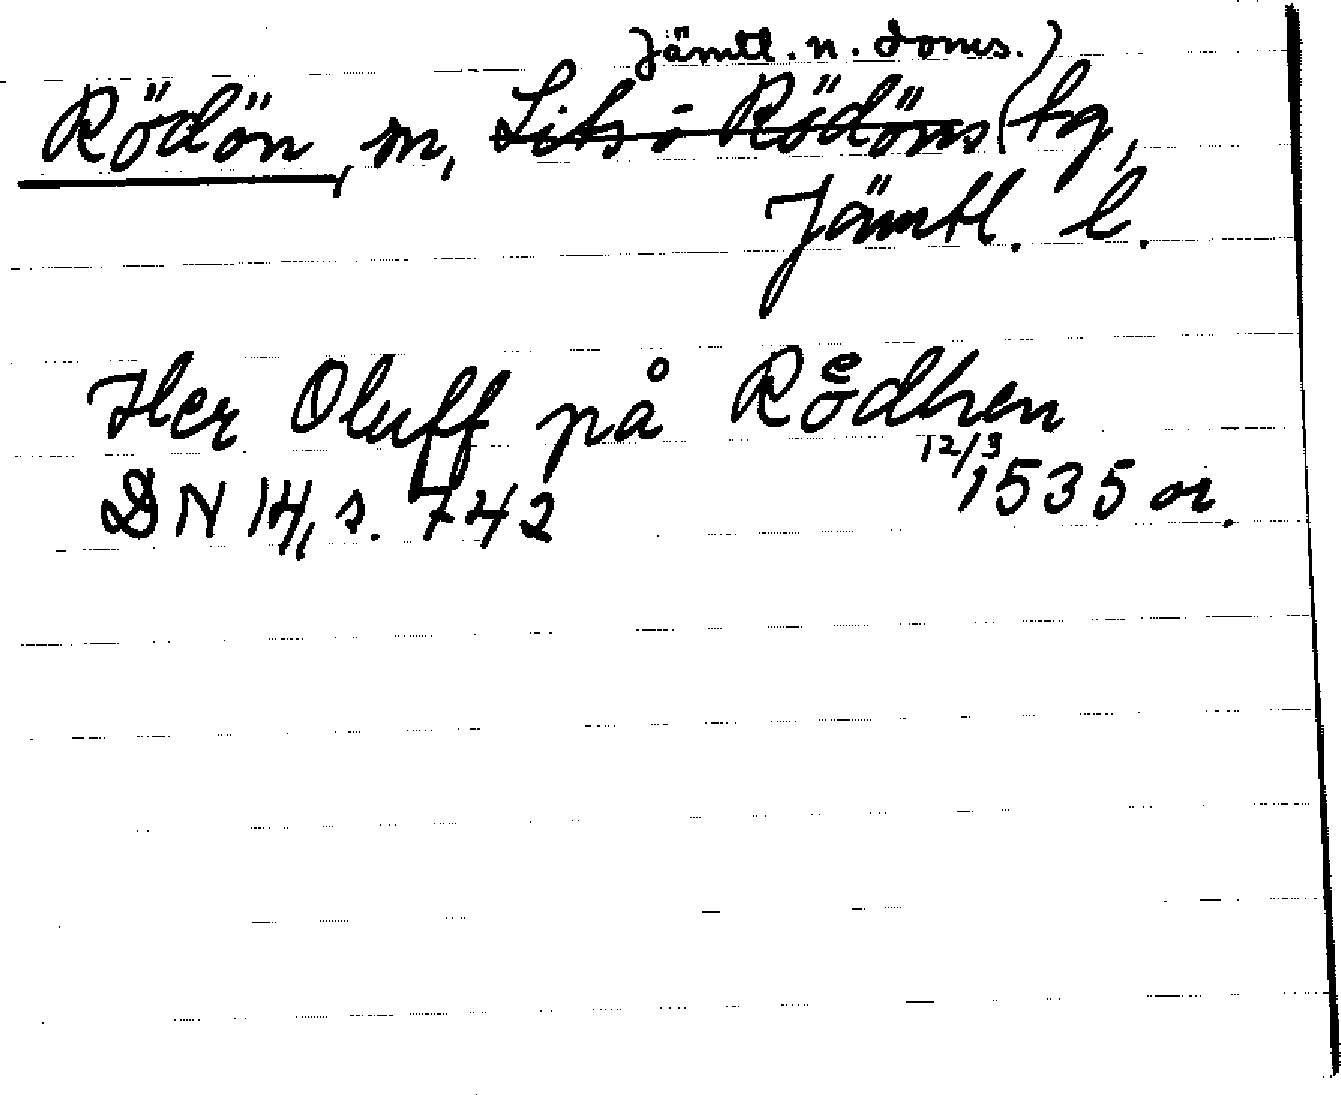 Jämtl. n. doms.
Rödön, sn, Lits o Rödöns tg,
Jämtl. l.
Her Oluff på Rødhen
DN 14, s. 742 12/3 1535 or.